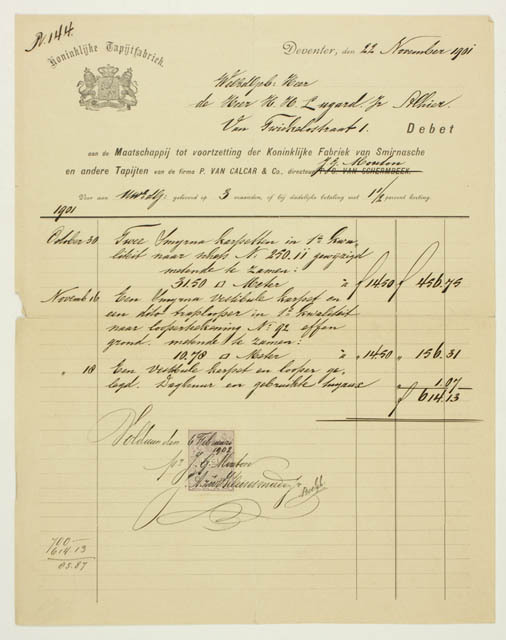 N. 144.
Koninklijke Tapijtfabriek.
Deventer, den 22 November 1901
WelEdlgeb: Heer
de Heer H. H. Lugard Jr Alhier.
Van Twickelostraat 1. Debet
aan de Maatschappij tot voortzetting der Koninklijke Fabriek van Smirnasche
J. G. Mouton
en andere Tapijten van de firma P. VAN CALCAR & Co., directeur J. C. VAN SCHERMBEEK.
Voor aan UwEdlg: geleverd op 3 maanden, of bij dadelijke betaling met 1 1/2 percent korting.
1901
October 30 Twee Smyrna karpetten in 1e kwa-
liteit naar schets No 250.11 gewijzigd
metende te zamen:
31.50 □ Meter à f 14.50 f 456.75
Novemb 16 Een Smyrna vestibule karpet en
een dito traplooper in 1e kwaliteit
naar looperteekening No 92 effen
grond. metende te zamen:
10.78 □ Meter à " 14.50 " 156.31
" 18 Een vestibule karpet en looper ge-
legd. Daghuur en gebruikte " 1.07
f 614.13
Voldaan den 6 Februari
1902
pr J. G. Mouton
700-
614.13
85.87